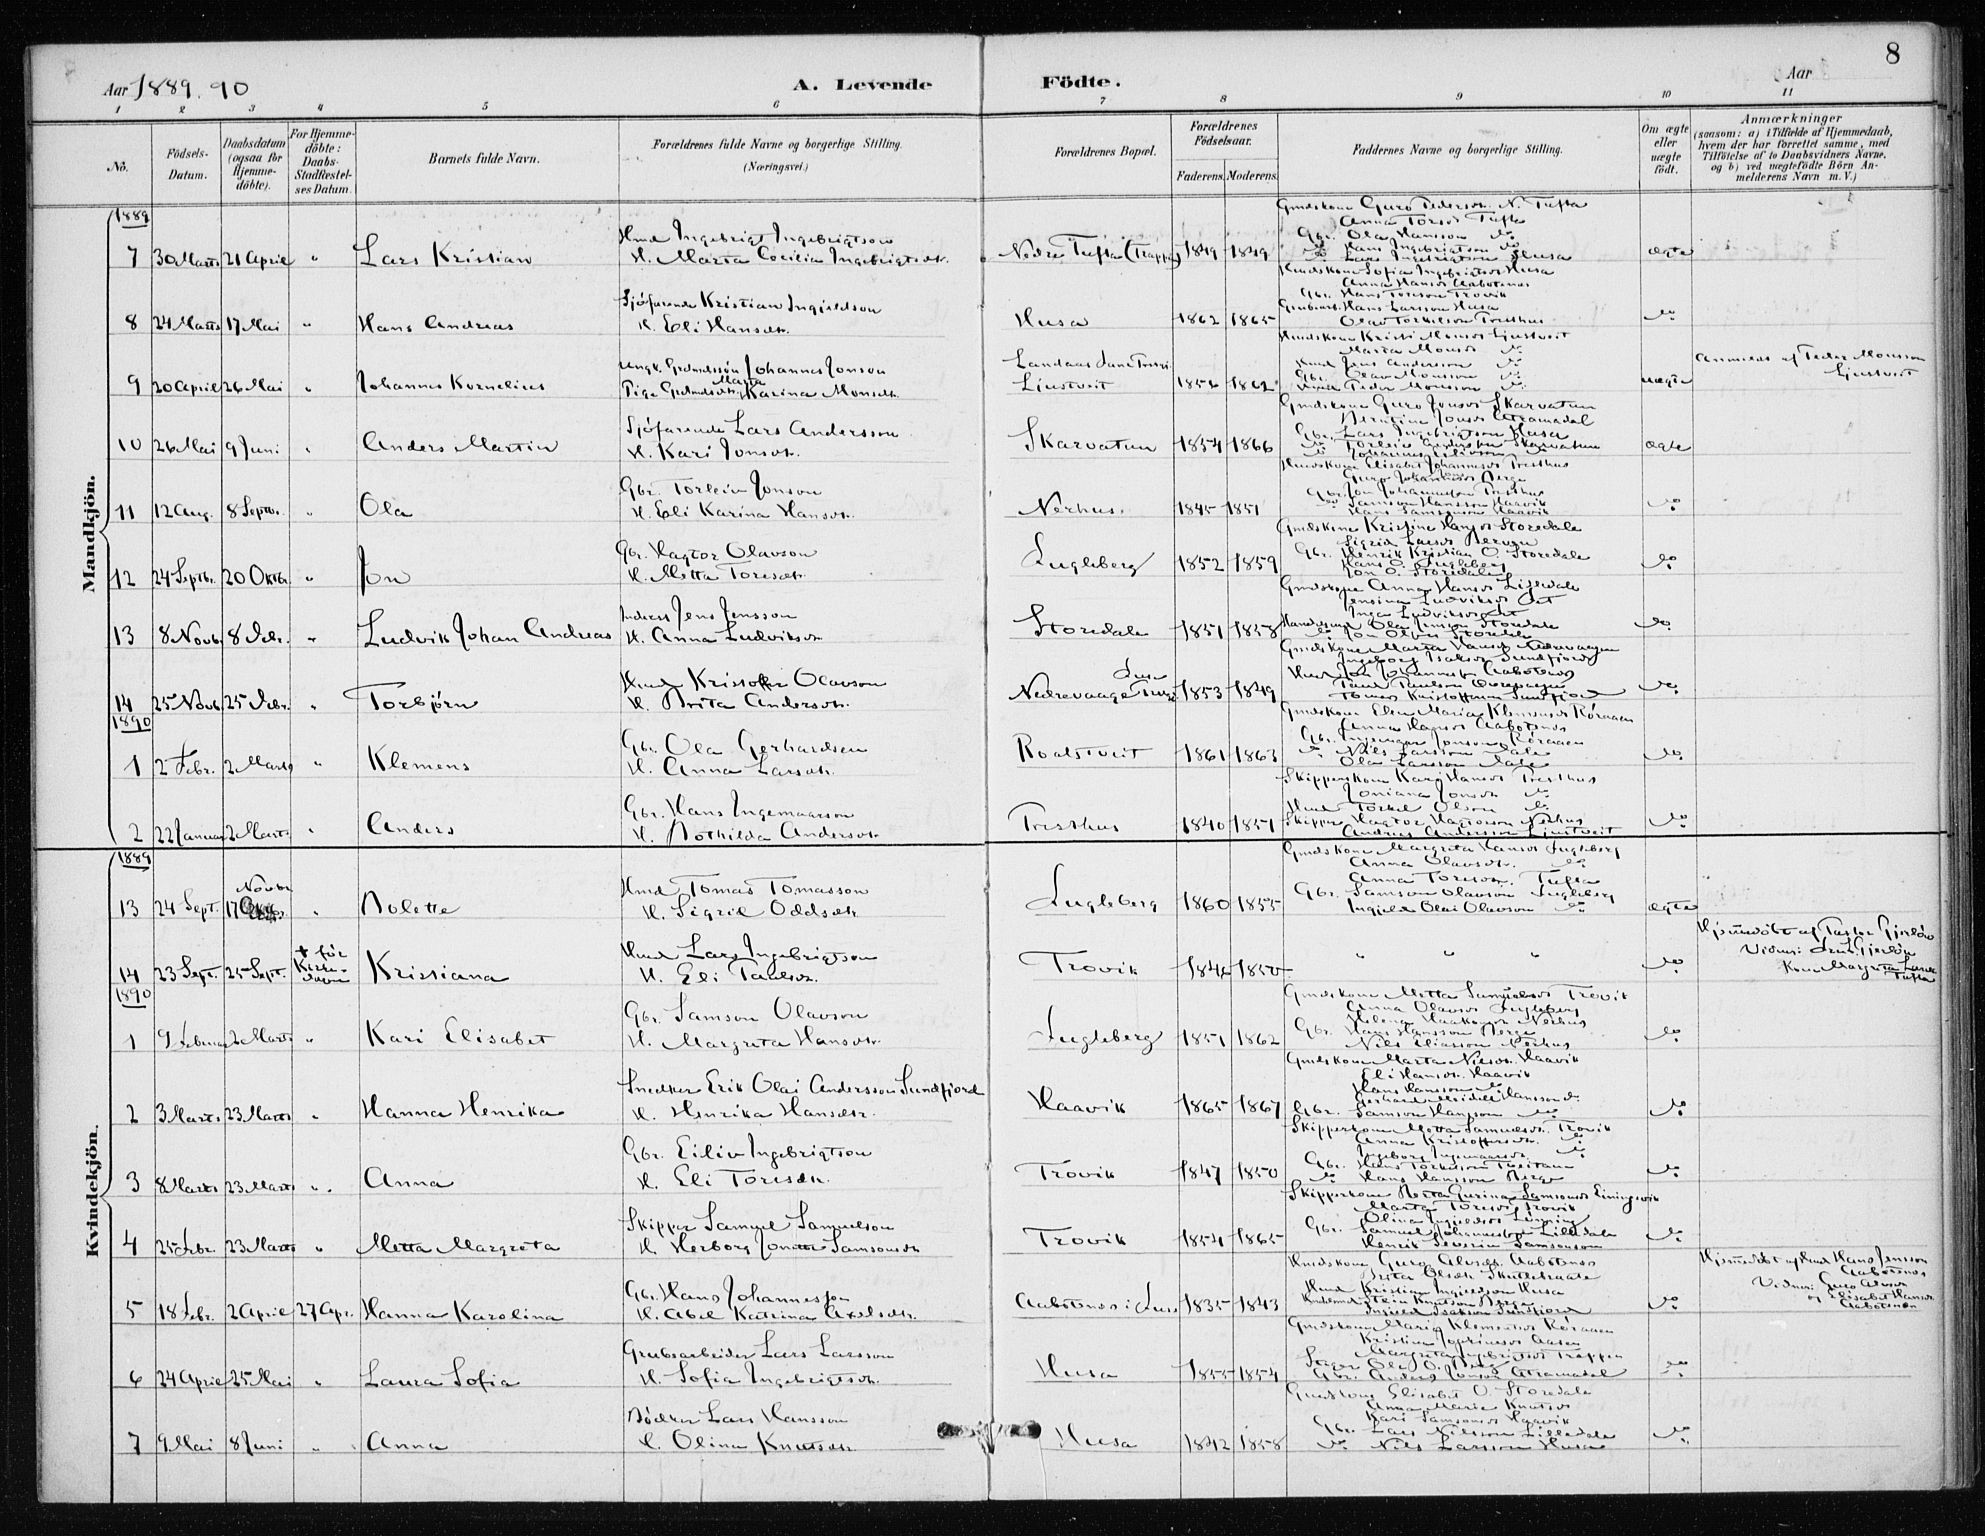 8
Aar 1889. 90
A. Levende Födte.
Aar
1 2 3 4 5 6 7 8 9 10 11
No.
Födsels-Datum.
Daabsdatum (ogsaa for Hjemme-döbte).
For Hjemme-döbte: Daabs-Stadfæstel-ses Datum.
Barnets fulde Navn.
Forældrenes fulde Navne og borgerlige Stilling. (Næringsvei.)
Forældrenes Bopæl.
Forældrenes Födselsaar.
Faderens. Moderens.
Faddernes Navne og borgerlige Stilling.
Om ægte eller uægte födt.
Anmærkninger
(saasom: a) i Tilfælde af Hjemmedaab, hvem der har forrettet samme, med Tilföielse af to Daabsvidners Navne, og b) ved uægtefödte Börn An-melderens Navn m. V.)
Mandkjön.
1889
7 30 Marts 21 April " Lars Kristian
Hmd Ingebrigt Ingebrigtson
H. Marta Cecilia Ingebrigtsdtr.
Nedre Tufta (Trappen) 1849 1849
Gmdskone Guro Pedersdr. N. Tufta
Anna Torsdr Tufta
Gbr. Ola Hansson do
do Hans Ingebrigtson do
do Lars Ingebrigtson Husa
ægte
8 24 Marts 17 Mai " Hans Andreas
Sjöfarende Kristian Ingieldson
H. Eli Hansdtr.
Husa 1862 1865
Hmdskone Sofia Ingebrigtsdr Husa
Anna Hansdr Aabotsnes
Gbr. Hans Toreson Trovik
Grubearb. Hans Larsson Husa
Olav Torkelson Tresthus
do
9 20 April 26 Mai " Johannes Kornelius
Ungk. Grdmdssön Johannes Jonson
Pige Grdmdsdtr. Marta Karina Monsdtr.
Ljustveit 1856 1862
Hmdskone Kristi Monsdr Ljustveit
Marta Monsdr do
Hmd Jens Andersson do
Gbr. Olav Monsson do
Hmd Peder Monsson do
uægte
Anmeldt af Peder Monsson
Ljustveit
10 26 Mai 9 Juni " Anders Martin
Sjöfarende Lars Andersson
H. Kari Jonsdtr.
Skarvatun 1854 1866
Gmdskone Guro Jonsdr Skarvatun
Gbr. Lars Ingebrigtson Husa
do Torleiv Andersson Skarvatun
ægte
11 12 Aug. 8 Septbr. " Ola
Gbr. Torleiv Jonson
H. Eli Karina Hansdtr.
Nerhus. 1845 1851
Hmdskone Elisabet Johannesdr Tresthus
Guro Johannesdr Berge
Gbr. Jon Johannesson Tresthus
do Samson Hansson Haavik
Hans Samsonson Haavik
do
12 24 Septbr. 20 Oktbr. " Jon
Gbr. Hagtor Olavson
H. Metta Toresdtr.
Lugleberg 1852 1859
Gmdskone Kristine Hansdr Storedale
Sigrid Larsdr Berven
Gbr. Henrik Kristian O. Storedale
Hans O. Lugleberg
Jon O. Storedale
do
13 8 Novb. 8 Dcbr. " Ludvik Johan Andreas
Inderst Jens Jensson
H. Anna Ludviksdr.
Storedale 1851 1858
Gmdskone Anna Hansdr Lilledale
Jensina Ludviksdr
Inga Ludviksdr
Handelsmd Ola Jenson Storedale
do Jon Olsen Storedale
do
14 25 Novb. 25 Dcbr. " Torbjörn
Hmd Kristoffer Olavson
H. Brita Andersdtr.
Nedrevaage 1853 1849
Gmdskone Marta Hansdr Nedrevaagen
Ingeborg Isaksdr Sundfjord
Hmd Jon Johannesson Aabotsnes
Tomas Kristoffersen Sundfjord
do
1890
1 2 Febr. 2 Marts " Klemens
Gbr. Ola Gerhardsen
H. Anna Larsdtr.
Roaldstveit 1861 1863
Gmdskone Elen Maria Klemensdr Röraaen
Anna Hansdr Aabotsnes
Gbr. Ingemar Jonson Röraaen
do Nils Larsson Dale
Ola Larsson Dale
do
2 22 Januar 2 Marts " Anders
Gbr. Hans Ingemarson
H. Bothilda Andersdtr.
Tresthus 1840 1851
Skipperskone Kari Hansdr Tresthus
Joniana Jonsdr do
Hmd Torkel Olson do
Skipper Hagtor Hagtorson Nerhus
Andreas Andersson Ljustveit
do
Kvindekjön.
1889
13 24 Sept. 17 Novbr. " Bolette
Hmd Tomas Tomasson
H. Sigrid Oddsdtr.
Lugleberg 1860 1855
Gmdskone Margreta Hansdr Lugleberg
Anna Olavsdtr. do
Anna Toresdr. Tufta
Gbr. Samson Olavson Lugleberg
Ingield Olai Olavson do
ægte
14 23 Sept. 25 Sept. † för Kirke-davn Kristiana
Hmd Lars Ingebrigtson
H. Eli Paulsdtr.
Trovik 1846 1850
" " "
do
Hjemmedöbt af Pastor Gjerlöw
Vidner: Gjerlöw
Kone Margreta
Tufta
1890
1 9 Februar 2 Marts " Kari Elisabet
Gbr. Samson Olavson
H. Margreta Hansdtr.
Lugleberg 1851 1862
Gmdskone Metta Samuelsdr Trovik
Anna Olavsdr Lugleberg
Helena Haakonsdr Nerhus
Gbr. Hans Hansson Berge
Nils Eliasson Nerhus
do
2 3 Marts 23 Marts " Hanna Henrika
Snedker Erik Olai Andersson Sundfjord
H. Henrika Hansdtr.
Haavik 1865 1867
Gmdskone Marta Nilsdr. Haavik
Eli Hansdr. Haavik
Hans Hansson do
Gbr. Samson Hansson do
do
3 8 Marts 23 Marts " Anna
Gbr. Eiliv Ingebrigtson
H. Eli Toresdtr.
Trovik 1847 1850
Skipperkone Metta Samuelsdr. Trovik
Anna Kristoffersdr. do
Ingeborg Ingemarsdr. do
do Hans Hansson Berge
do
4 25 Febr. 23 Marts " Metta Margreta
Skipper Samuel Samuelson
H. Herborg Jonette Samsonsdr
Trovik 1854 1865
Marta Toresdr Trovik
Gbr. Samuel Johannesson Lilledale
Henrik Severin Samsonson
do
5 18 Febr. 2 April 27 Apr. Hanna Karolina
Gbr. Hans Johannesson
H. Abel Katrina Axelsdtr.
Aabotsnes i 1835 1843
Hmdskone Guro Olavsdr. Aabotsnes
Hmd Kristian Ingieldson Husa
do
Hjemmedöbt af Hmd Hans Jensson
Aabotsnes
Vidner: Guro Olavsdr
og Elisabet Hansdr
Aabotsnes
6 24 April 25 Mai " Laura Sofia
Grubearbeider Lars Larsson
H. Sofia Ingebrigtsdtr.
Husa 1855 1854
Gmdskone Maria Klemensdr Röraaen
Margreta Ingebrigtsdr Trappen
do
7 9 Mai 8 Juni " Anna
Bödker Lars Hansson
H. Olina Knutsdtr.
Husa 1842 1858
Gmdskone Elisabet O. Storedale
Anna Marie Knutsdr
Kari Samsonsdr Haavik
Gbr. Lars Nilsson Lilledale
do Nils Larsson Husa
do